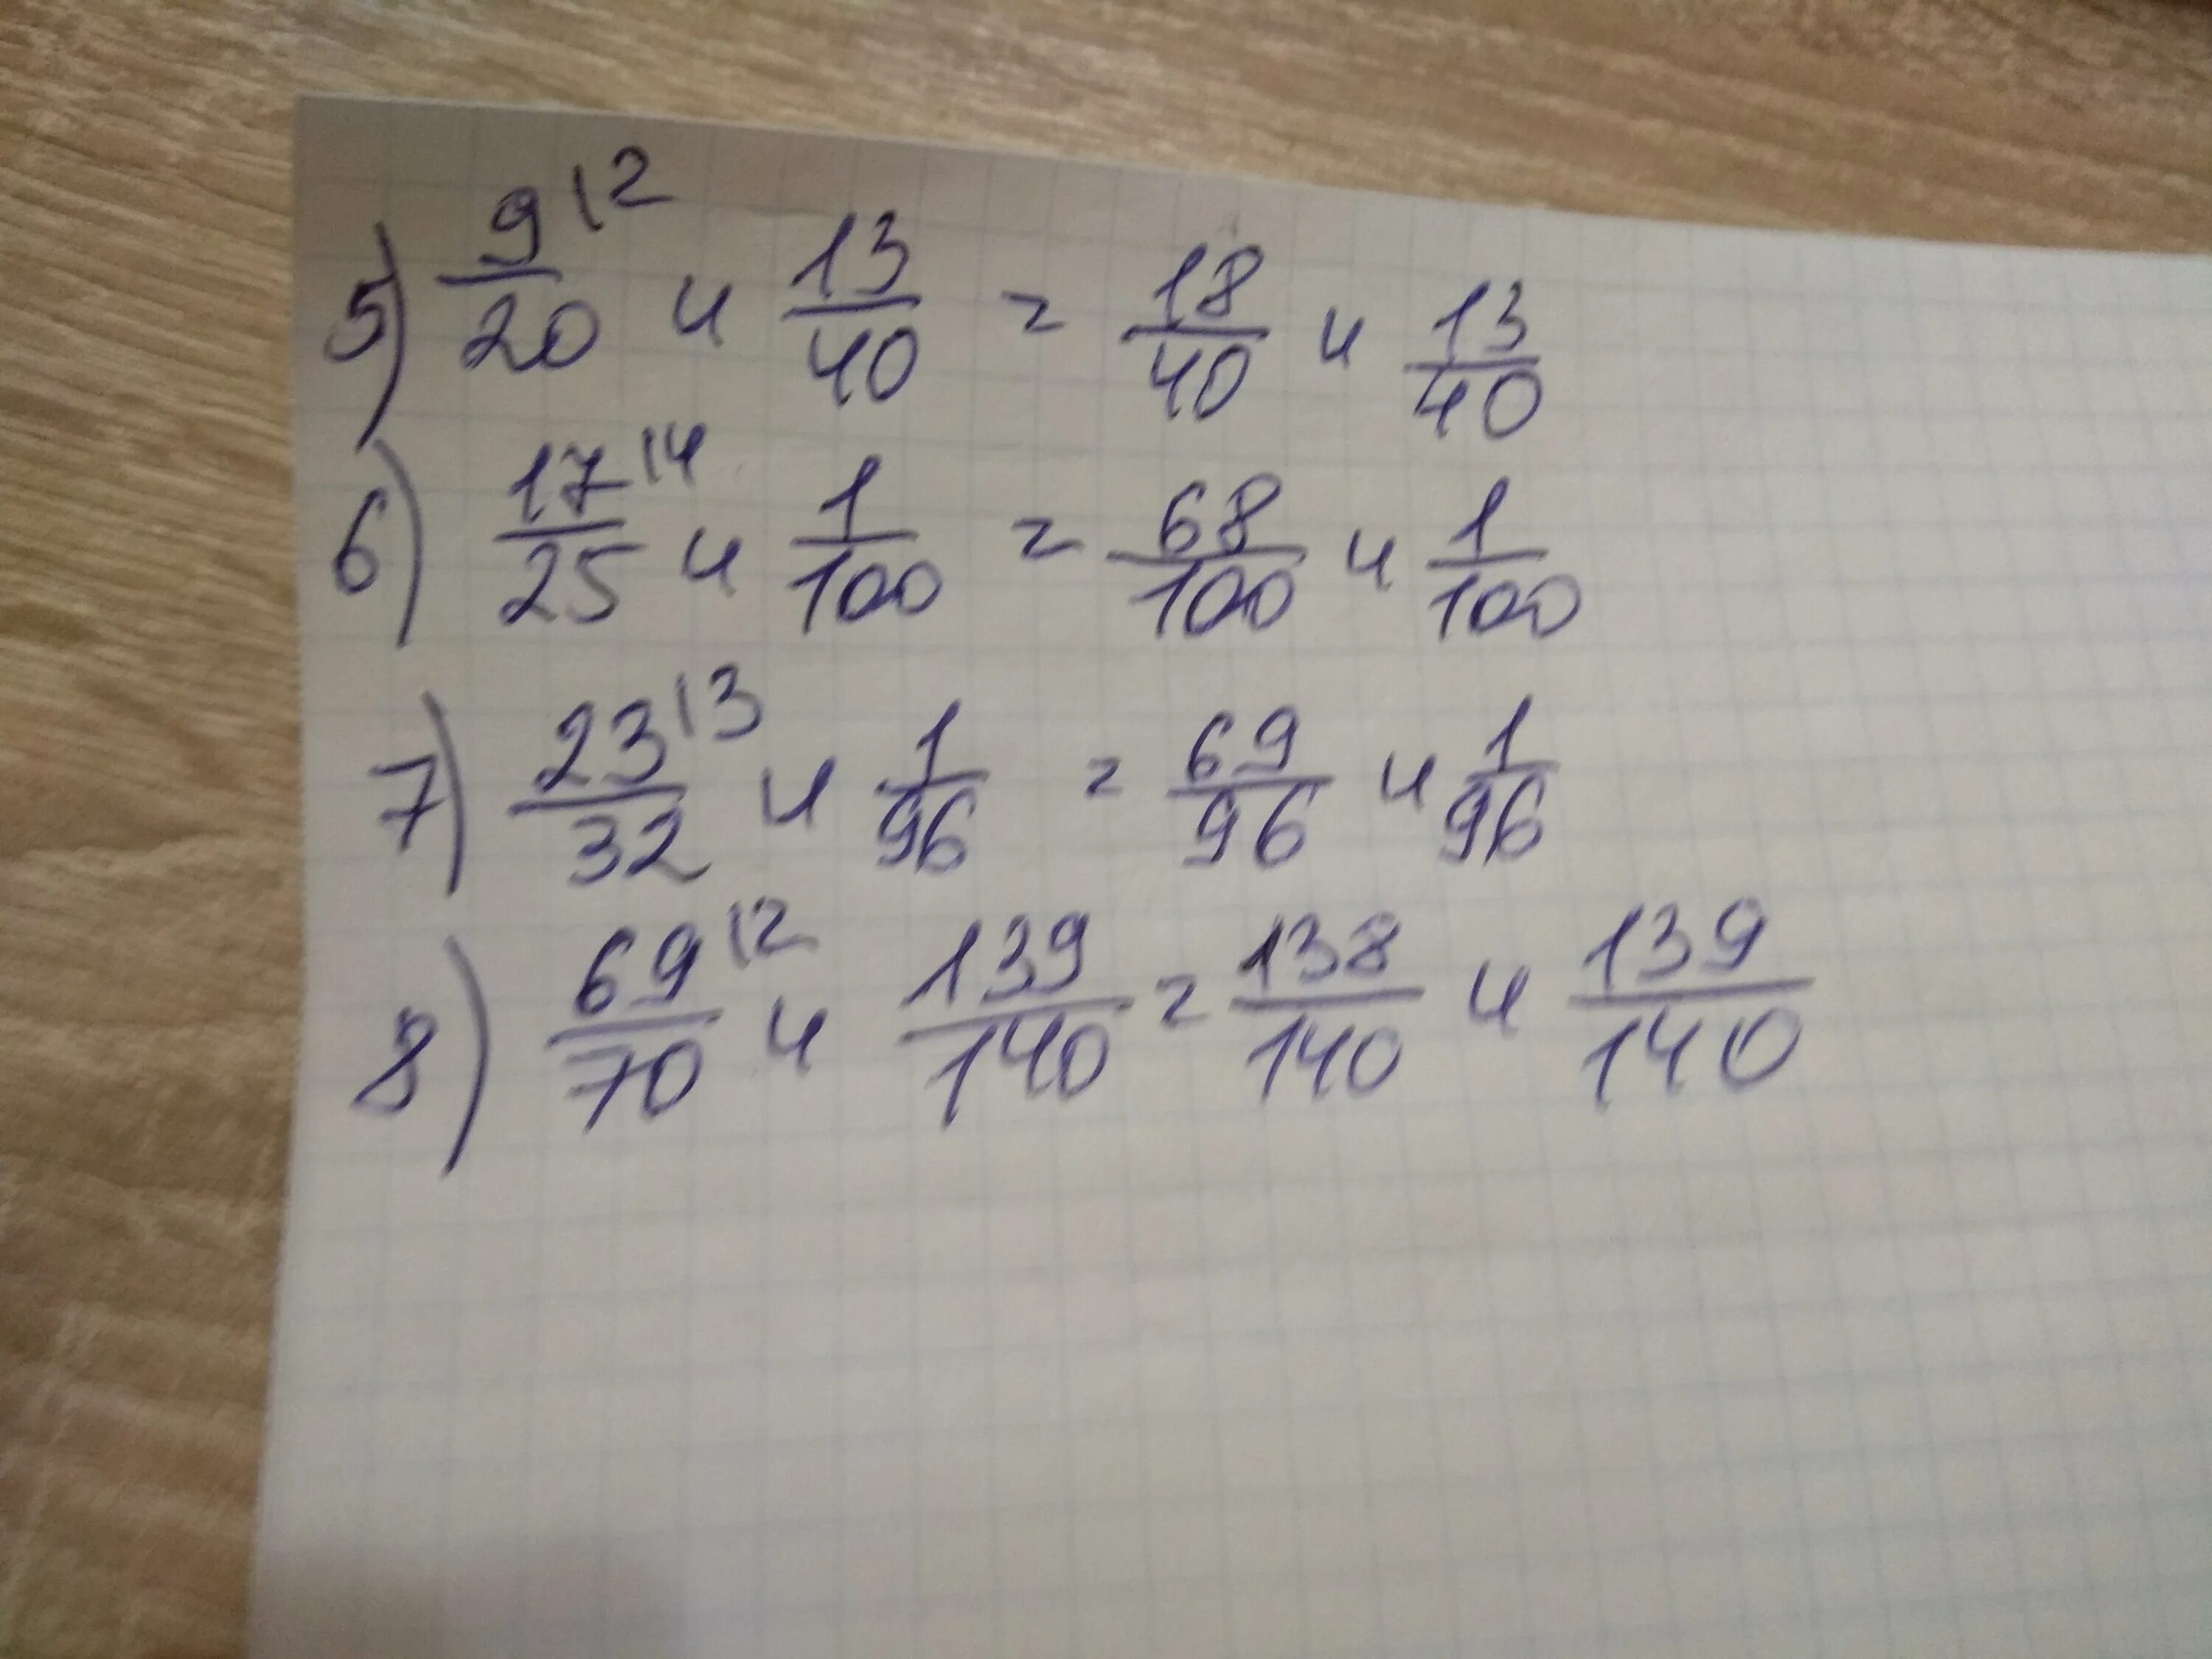 5) 9\2/20 и 13/40 = 18/40 и 13/40
6) 17\4/25 и 1/100 = 68/100 и 1/100
7) 23\3/32 и 1/96 = 69/96 и 1/96
8) 69\2/70 и 139/140 = 138/140 и 139/140